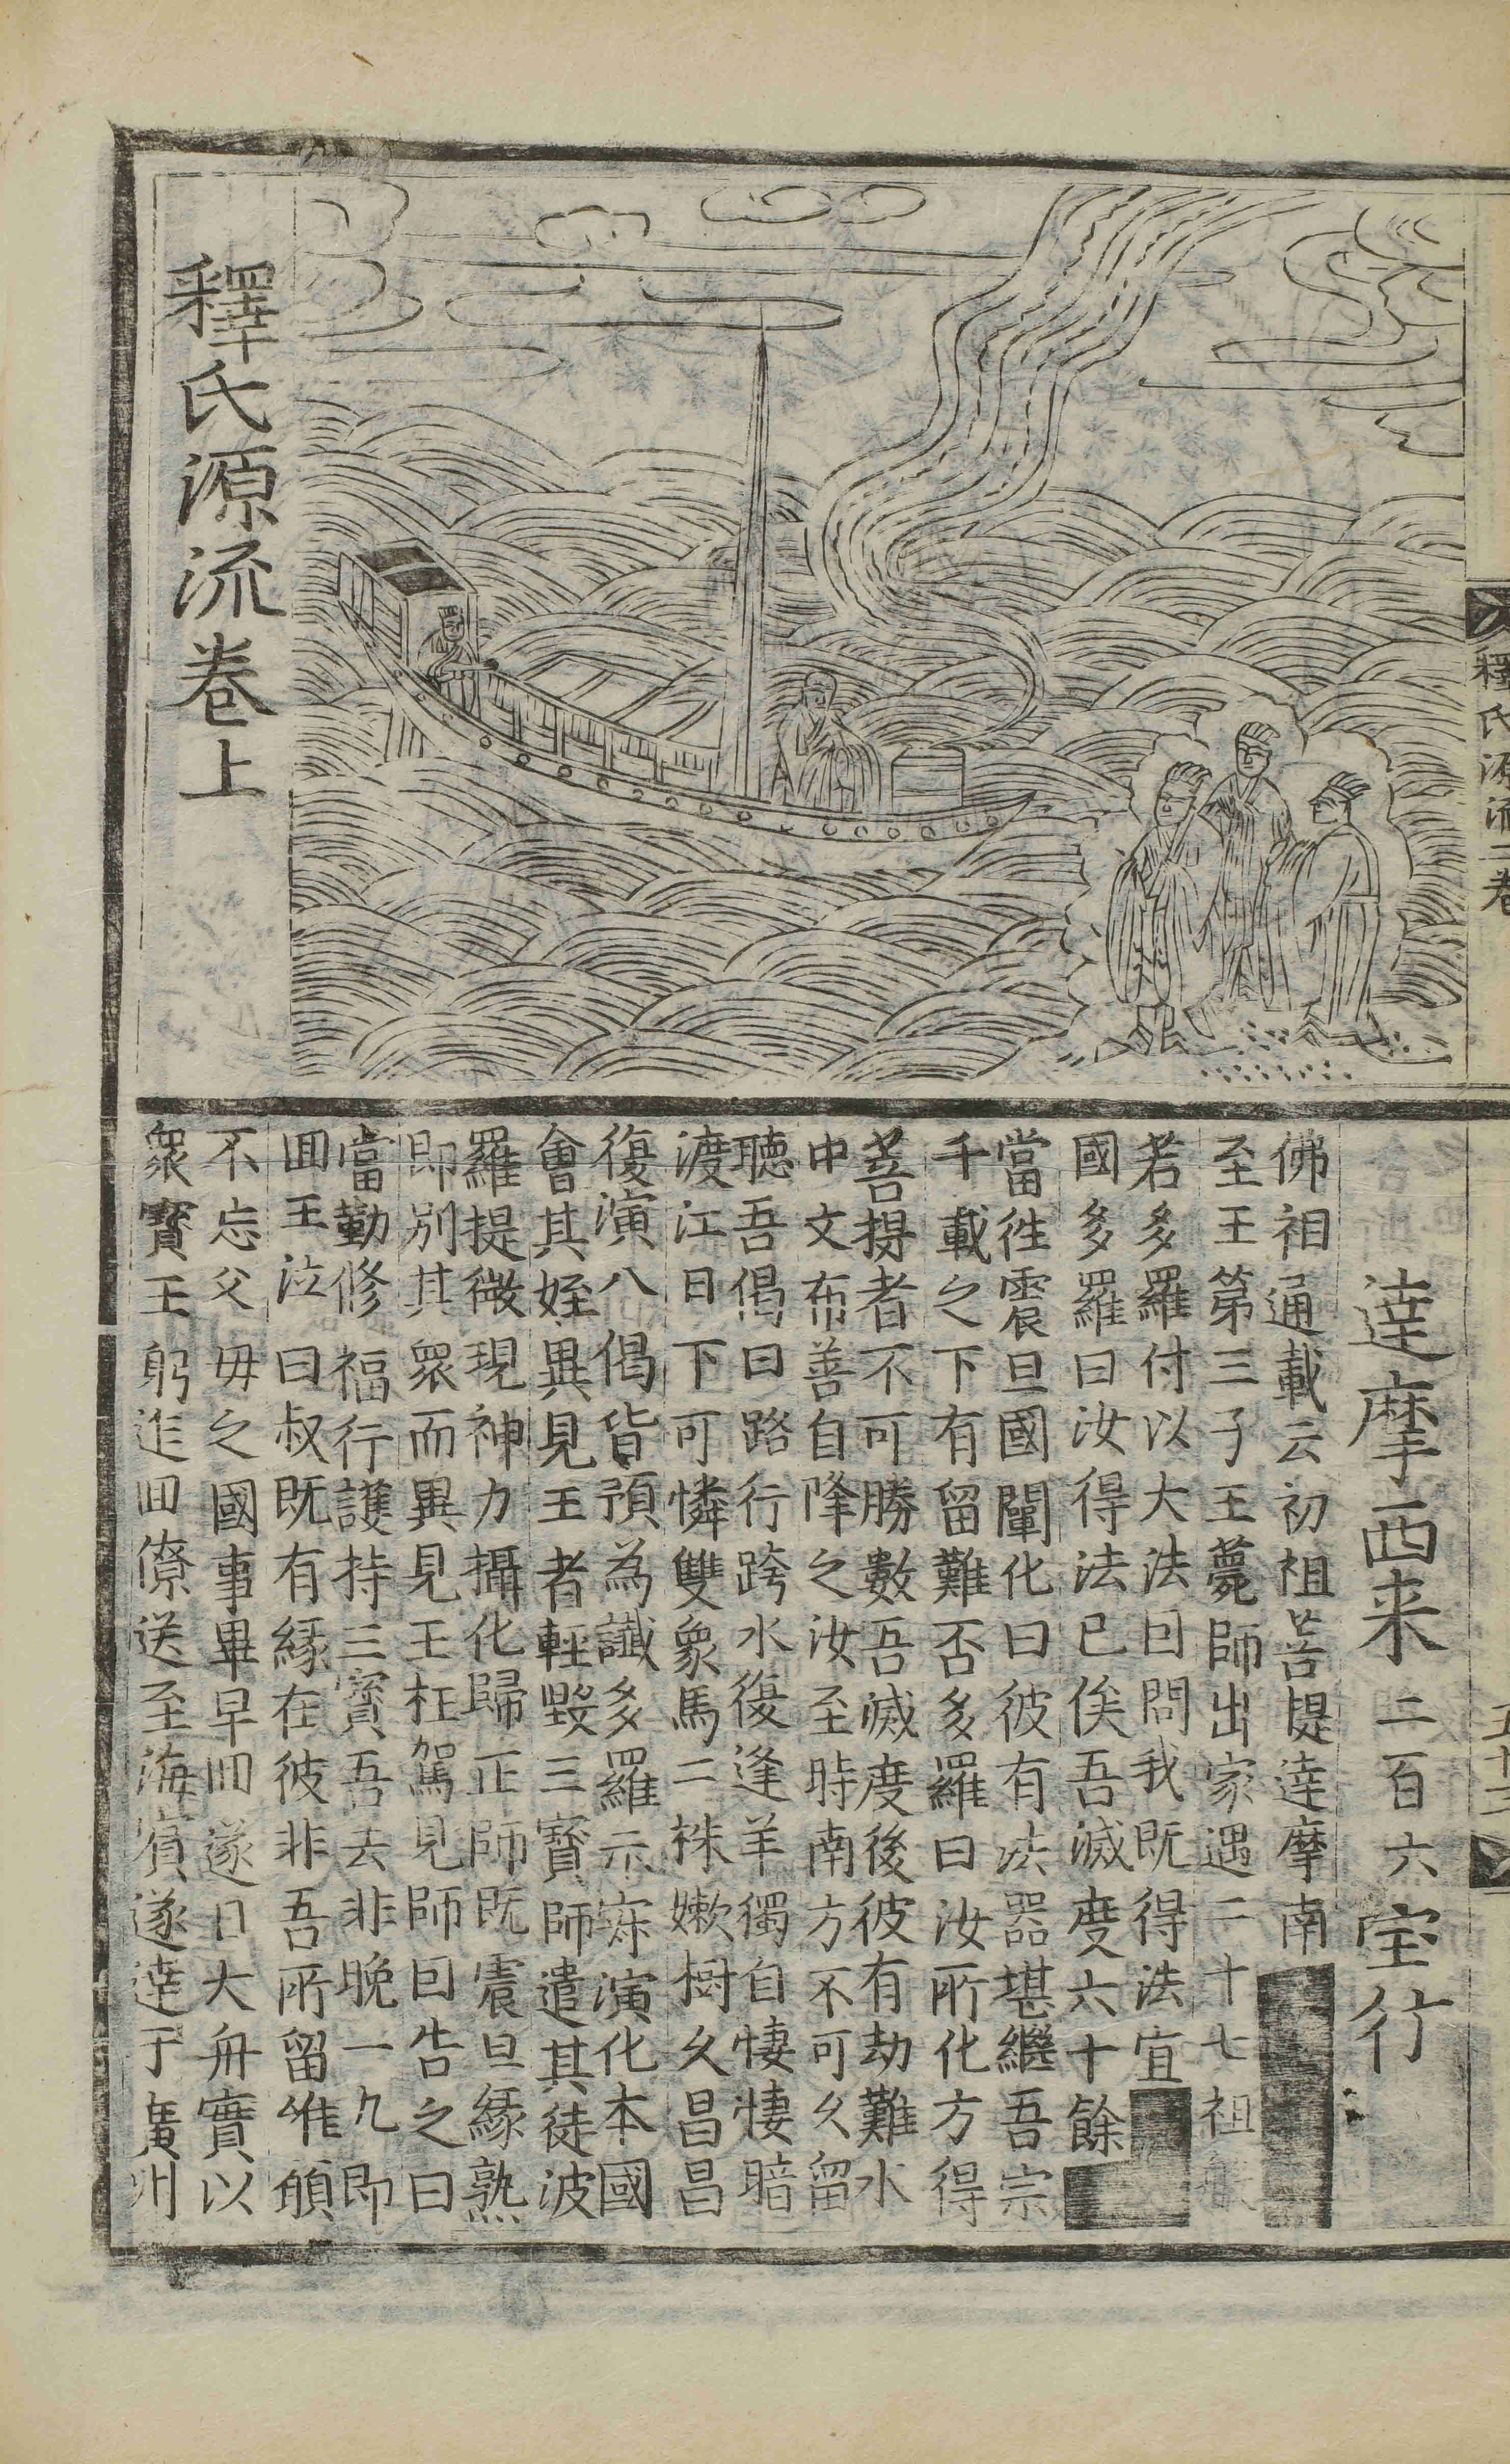 達摩西来 二百六 宝行
佛祖通載云初祖菩提達摩南
至王第三子王薨師出家遇二十七祖般
若多羅付以大法因問我既得法宜
國多羅曰汝得法已俟吾滅度六十餘
當徃震旦國闡化曰彼有法器堪繼吾宗
千載之下有留難否多羅曰汝所化方得
菩提者不可勝數吾滅度後彼有劫難水
中文布善自降之汝至時南方不可久留
聴吾偈曰路行跨水復逢羊獨自悽悽暗
渡江日下可憐雙象馬二株嫰樹久昌昌
復演八偈皆預為讖多羅示寂演化本國
會其姪異見王者輕毀三寳師遣其徒波
羅提微現神力攝化歸正師既震旦緣熟
即別其衆而異見王枉駕見師曰告之曰
當勤修福行護持三寳吾去非晚一九即
囬王泣曰叔既有緣在彼非吾所留惟頋
不忘父毋之國事畢早囬遂日大舟實以
衆寳王躬率囬僚送至海濱遂達于廣州
釋氏源流卷上
釋氏源流二卷